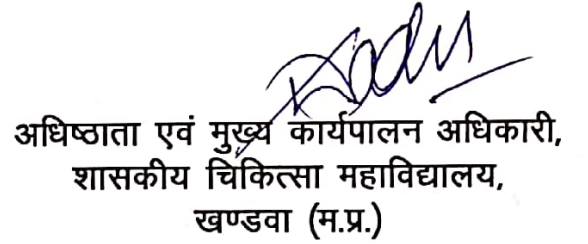 अधिष्ठाता एवं मुख्य कार्यपालन अधिकारी,
शासकीय चिकित्सा महाविद्यालय,
खण्डवा (म.प्र.)